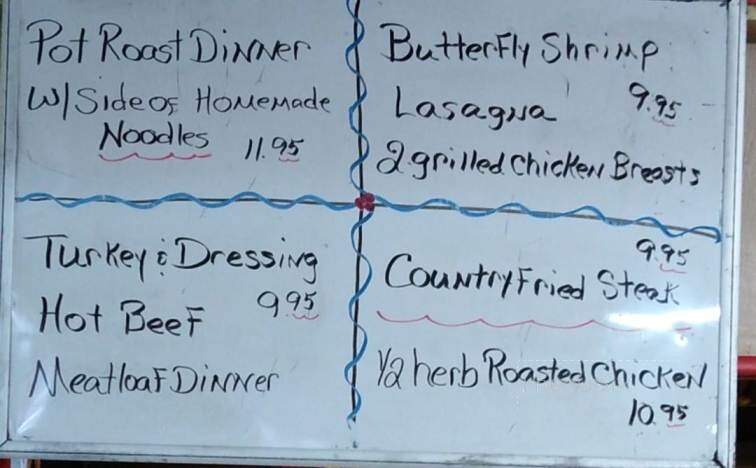 Pot Roast Dinner
W/ Side of Homemade
Noodles 11.95
Butterfly Shrimp
Lasagna 9.95
2 grilled Chicken Breasts
Turkey & Dressing
Hot Beef 9.95
Meatloaf Dinner
9.95
Country Fried Steak
1/2 herb Roasted Chicken
10.95